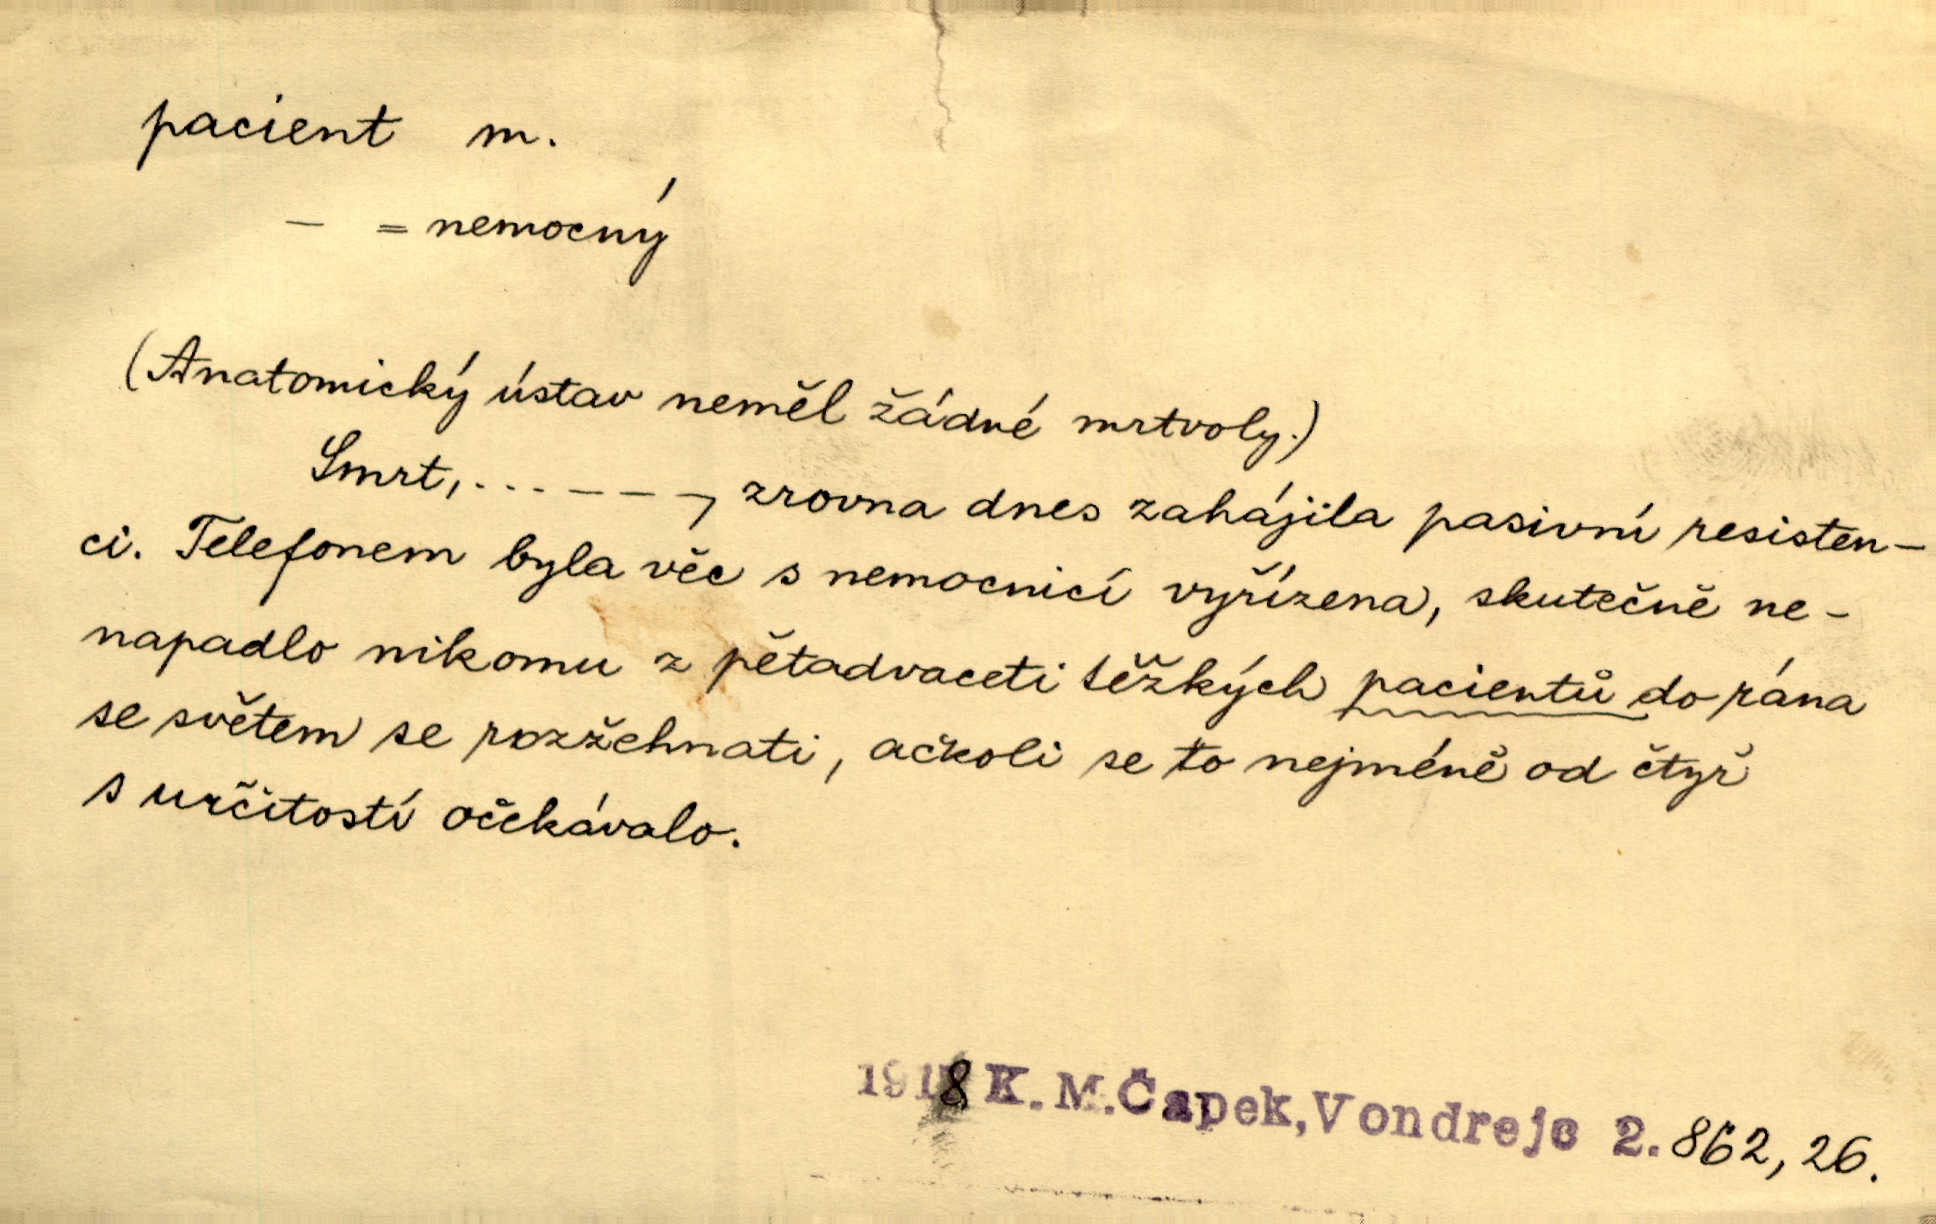 pacient m.
— = nemocný
(Anatomický ústav neměl žádné mrtvoly.)
Smrt, . . . – – – , zrovna dnes zahájila pasivní resisten-
ci. Telefonem byla věc s nemocnicí vyřízena, skutečně ne-
napadlo nikomu z pětadvaceti těžkých pacientů do rána
se světem se rozžehnati, ačkoli se to nejméně od čtyř
s určitostí očekávalo.
1918 K. M. Čapek, Vondrejc 2. 862, 26.